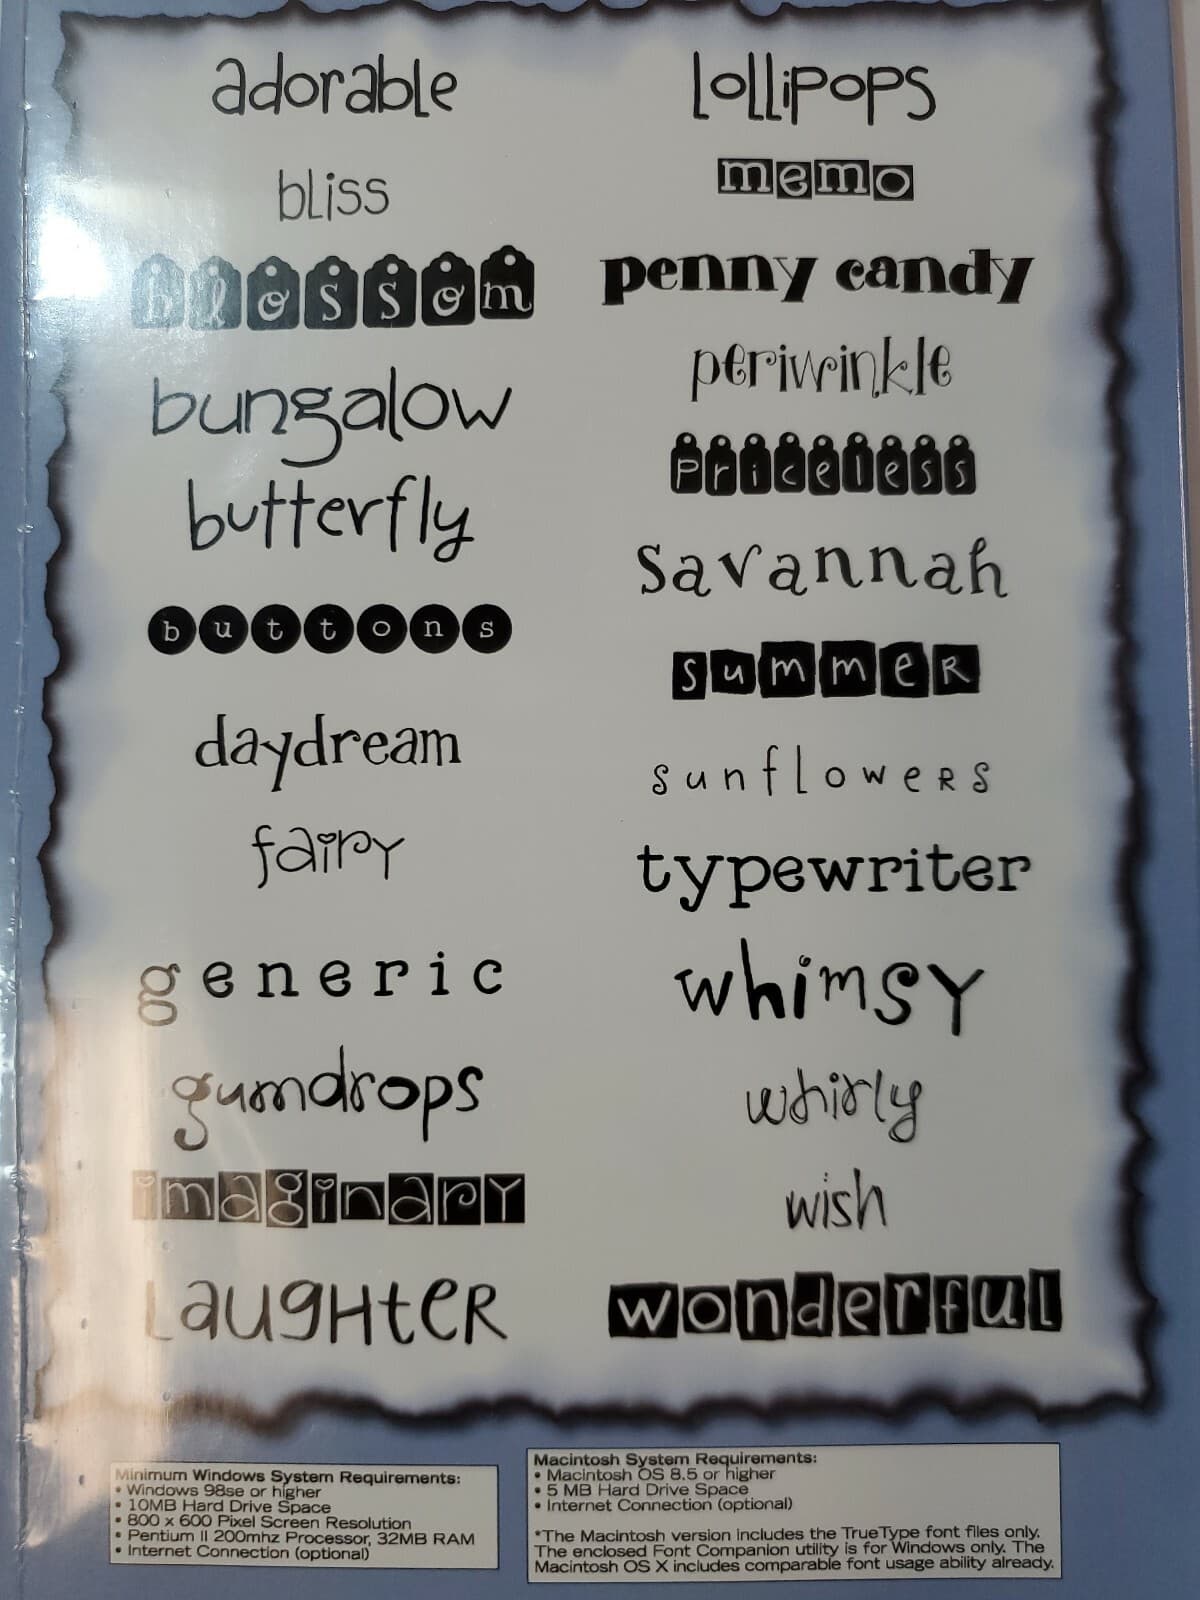 adorable
bliss
blossom
bungalow
butterfly
buttons
daydream
fairy
generic
gumdrops
imaginary
LaugHteR
lolliPoPs
memo
penny candy
periwinkle
Priceless
savannah
summeR
sunfloweRs
typewriter
whimsy
whirly
wish
wonderful
Minimum Windows System Requirements:
• Windows 98se or higher
• 10MB Hard Drive Space
• 800 x 600 Pixel Screen Resolution
• Pentium II 200mhz Processor, 32MB RAM
• Internet Connection (optional)
Macintosh System Requirements:
• Macintosh OS 8.5 or higher
• 5 MB Hard Drive Space
• Internet Connection (optional)
*The Macintosh version includes the TrueType font files only.
The enclosed Font Companion utility is for Windows only. The
Macintosh OS X includes comparable font usage ability already.